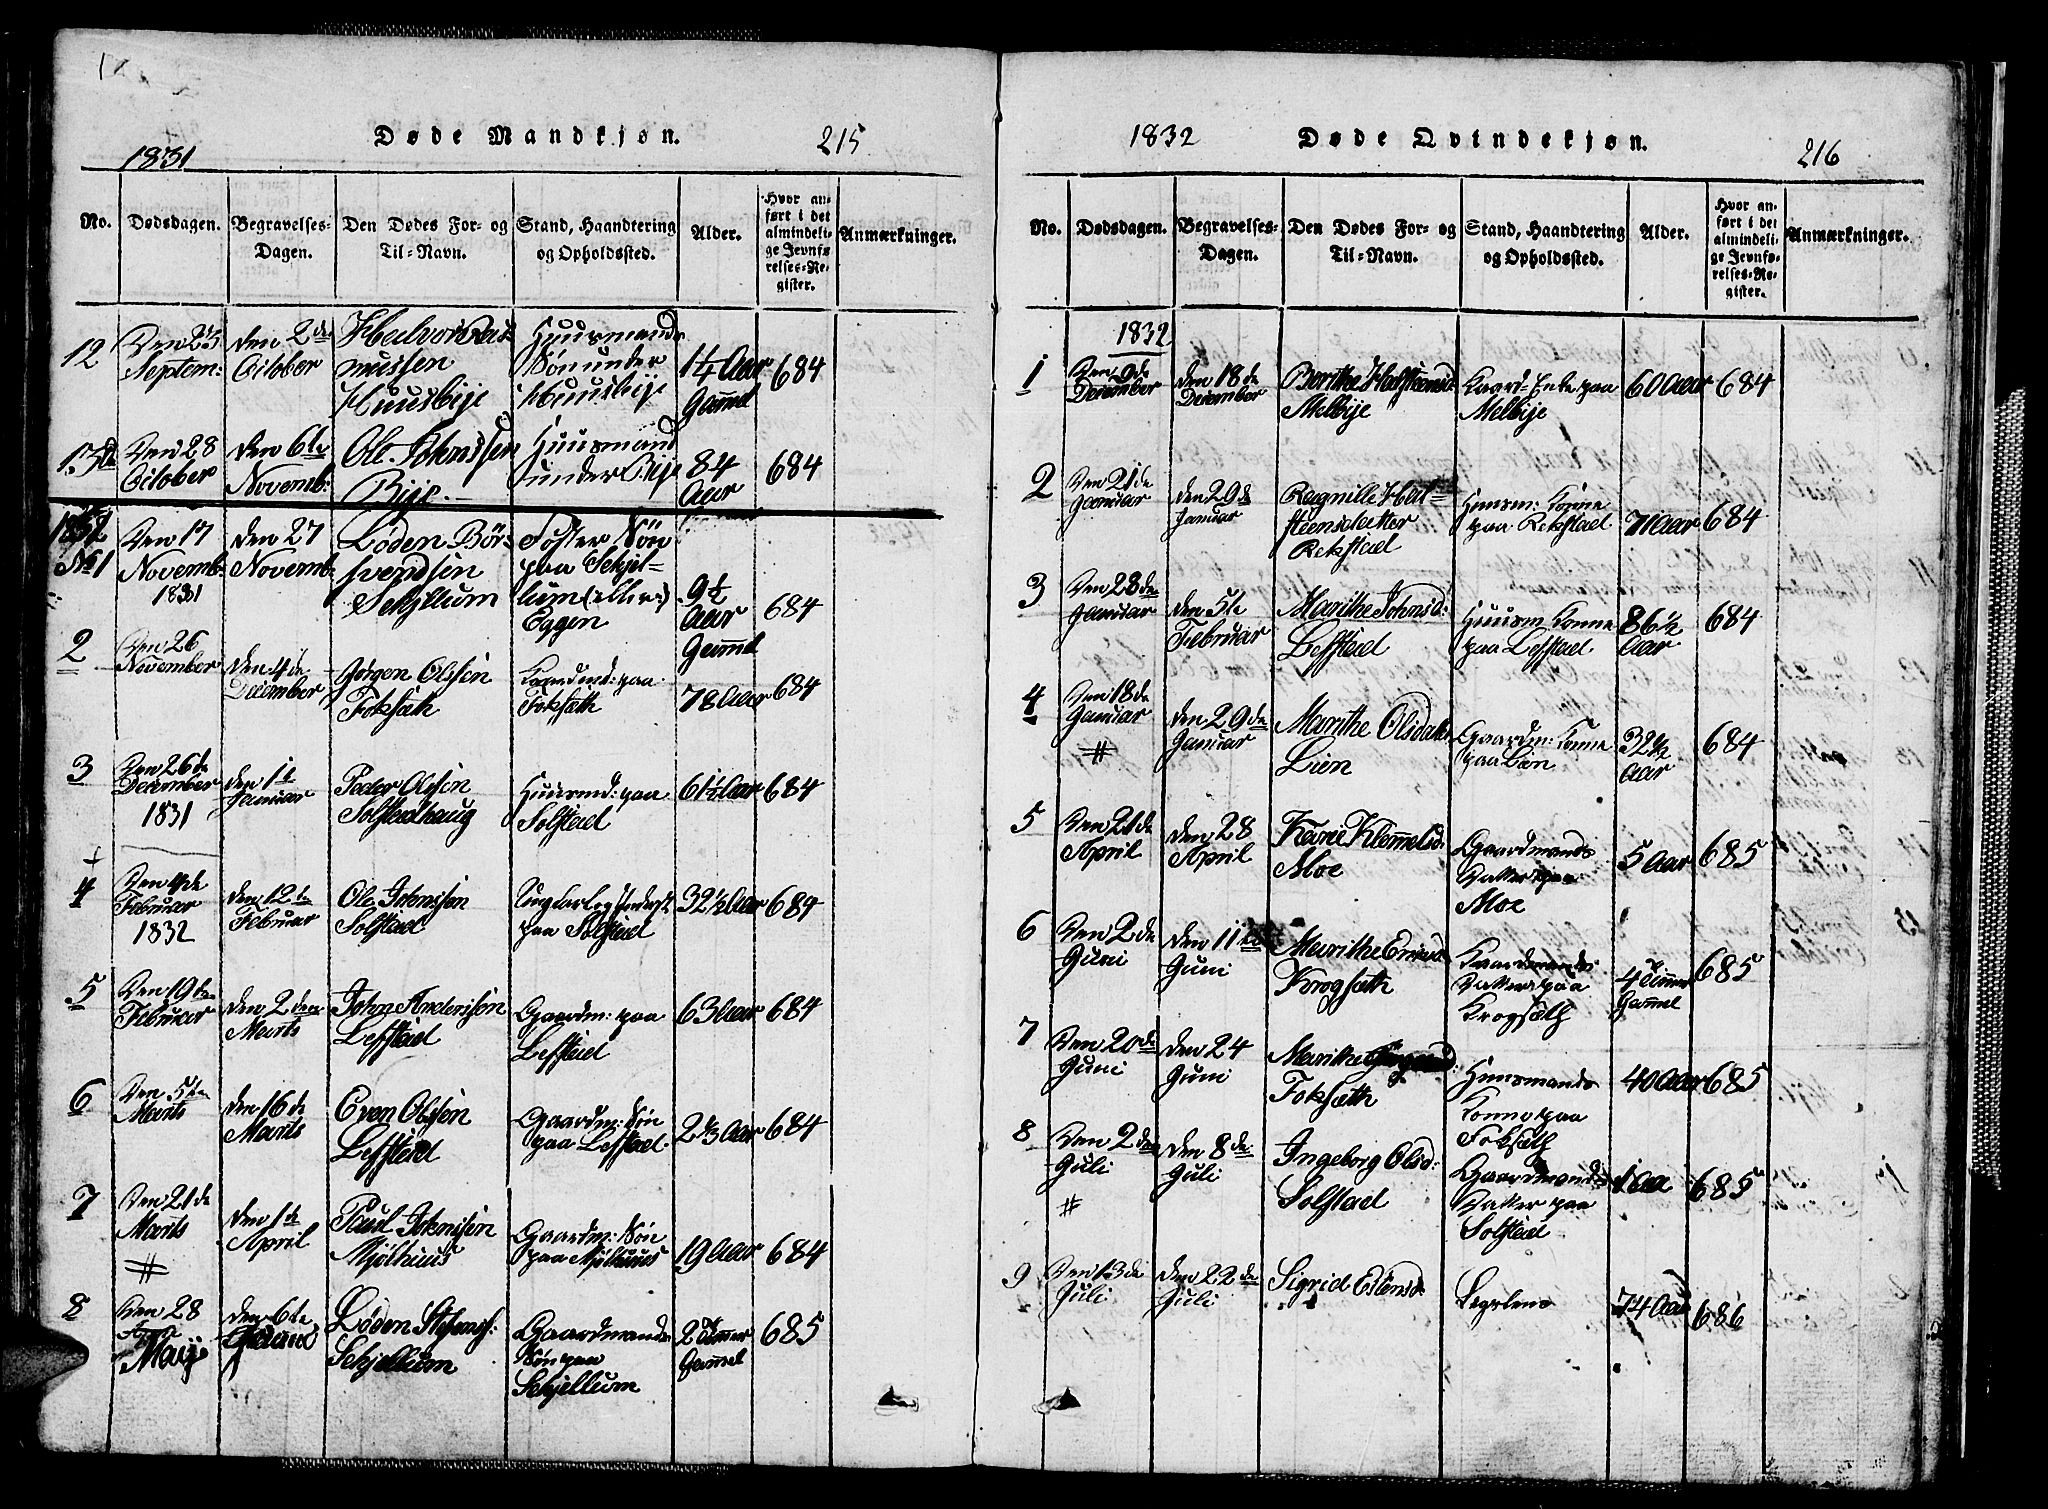 Døde Mandkjøn.
215
1831
No.
Dødsdagen.
Begravelses-
Dagen.
Den Dødes For- og
Til-Navn.
Stand, Haandtering
og Opholdssted.
Alder.
Hvor an-
ført i det
almindeli-
ge Jevnfø-
relses-Re-
gister.
Anmærkninger.
12
Den 23
Septem:
den 2den
October
Halvor Ras
mussen
Huusbye
Huusmands
Søn under
Huusbye
1¼ Aar
Gammel
684
13de
Den 28
October
den 6te
Novemb:
Ole Johnssen
Bye
Huusmand
under Bye
84
Aar
684
1832
No 1
Den 17
Novemb:
1831
den 27
Novemb:
Loden Bør-
svendsen
Schjellum
Foster Søn
paa Schjel-
lum (eller)
Eggen
9½
Aar
Gamml
684
2
Den 26
November
den 4de
December
Jørgen Olssen
Foksæth
Gaardmd: paa
Foksæth
78 Aar
684
3
Den 26de
December
1831
den 1te
Januar
Peder Olssen
Solstadhaug
Huusmd: paa
Solstad
61½ Aar
684
4
Den 4de
Februar
1832
den 12te
Februar
Ole Johnssen
Solstad
paa Solstad
32½ Aar
684
5
Den 19te
Februar
den 2den
Marts
John Anderssen
Lefstad
Gaardm: paa
Lefstad
63 Aar
684
6
Den 5te
Marts
den 16de
Marts
Even Olssen
Lefstad
Gaardm: Søn
paa Lefstad
2⅔ Aar
684
7
Den 21de
Marts
#
den 1te
April
Paul Johnssen
Mjølhuus
Gaardm: Søn
paa Mjølhuus
19 Aar
684
8
Den 28
Maij
den 6te
Loden Stefens:
Schjellum
Gaardmands
Søn paa
Schjellum
2 Timer
Gammel
685
1832
Døde Qvindekjøn.
216
No.
Dødsdagen.
Begravelses-
Dagen.
Den Dødes For- og
Til-Navn.
Stand, Haandtering
og Opholdssted.
Alder.
Hvor an-
ført i det
almindeli-
ge Jevnfø-
relses-Re-
gister.
Anmærkninger.
1832
1
Den 9de
December
den 18de
December
Berithe Halsteensd
Melbye
Gaard-Enke paa
Melbye
60 Aar
684
2
Den 21de
Januar
den 29de
Januar
Ragnille Hal-
steensdatter
Rekstad
Huusm: Konne
paa Rekstad
71 Aar
684
3
Den 28de
Januar
den 5te
Februar
Marithe Johnsd:
Lefstad
Huusm Konne
paa Lefstad
86½
Aar
684
4
Den 18de
Januar
#
den 29de
Januar
Marithe Olsdatter
Lien
Gaardm: Konne
paa Lien
32½
Aar
684
5
Den 21de
April
den 28
April
Karie Klemmetsd:
Moe
Gaardmands
Datter paa
Moe
5 Aar
685
6
Den 2de
Juni
den 11te
Juni
Marithe Ericsd
Krogsæth
Gaardmands
Datter paa
Krogsæth
4 Timer
Gammel
685
7
Den 20de
Juni
den 24
Juni
Marithe
Foksæth
Huusmands
Konne paa
Foksæth
40 Aar
685
8
Den 2den
Juli
#
den 8de
Juli
Ingeborg Olsd:
Solstad
Gaardmands
Datter paa
Solstad
1 Aar
685
9
Den 13de
Juli
den 22de
Juli
Sigrid Estensd:
Legslem
74 Aar
686